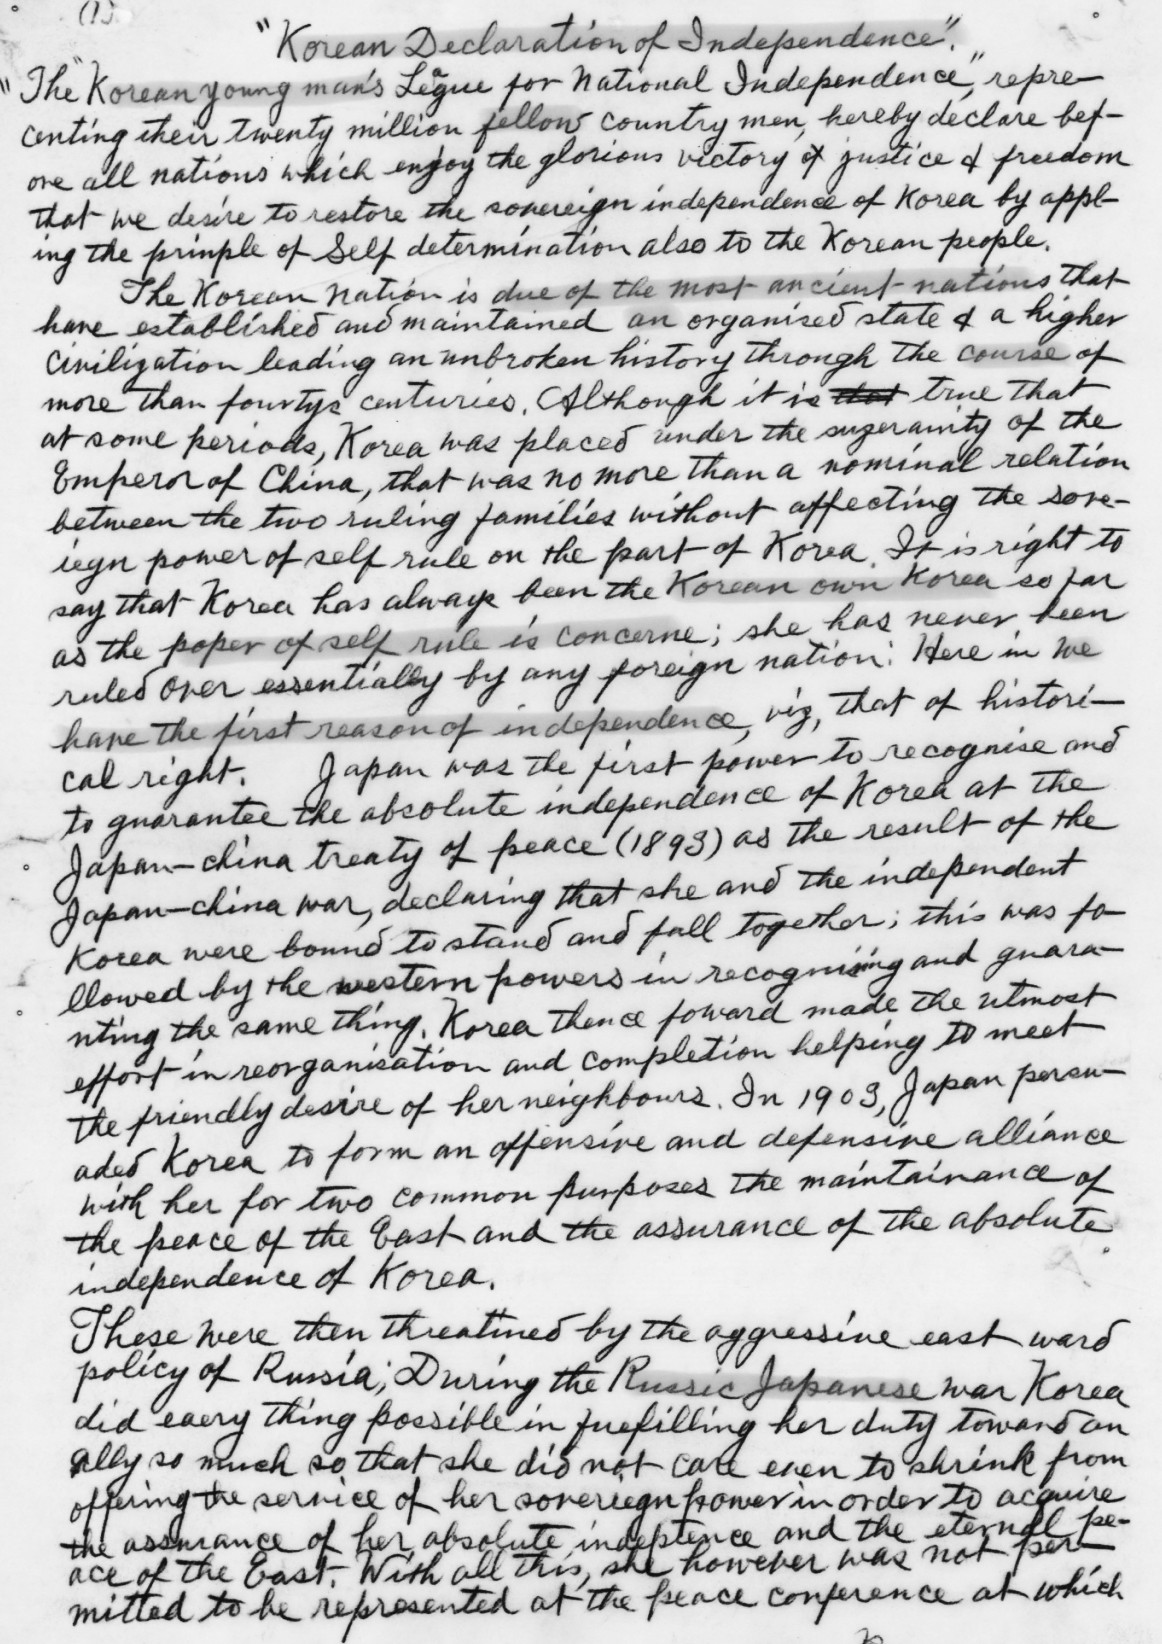 (1).
"Korean Declaration of Independence".
"The "Korean young man's Legue for National Independence", repre-
centing their twenty million fellow country men, hereby declare bef-
ore all nations which enjoy the glorious victory of justice & freedom
that we desire to restore the sovereign independence of Korea by appl-
ing the prinple of Self determination also to the Korean people.
The Korean Nation is due of the most ancient nations that
have established and maintained an organised state & a higher
civilization leading an unbroken history through the course of
more than fourtys centuries. Although it is that true that
at some periods, Korea was placed under the suzerainity of the
Emperor of China, that was no more than a nominal relation
between the two ruling families without affecting the sove-
iegn power of self rule on the part of Korea. It is right to
say that Korea has always been the Korean own Korea so far
as the poper of self rule is concerne; she has never been
ruled over essentially by any foreign nation. Here in we
have the first reason of independence, viz, that of histori-
cal right. Japan was the first power to recognise and
to guarantee the absolute independence of Korea at the
Japan-china treaty of peace (1893) as the result of the
Japan-china war, declaring that she and the independent
Korea were bound to stand and fall together; this was fo-
llowed by the western powers in recognising and guara-
nting the same thing. Korea thence foward made the utmost
effort in reorganisation and completion helping to meet
the friendly desire of her neighbours. In 1903, Japan persu-
aded Korea to form an offensive and defensive alliance
with her for two common purposes the maintainance of
the peace of the East and the assurance of the absolute
independence of Korea.
These were then threatined by the aggressive east ward
policy of Russia; During the Russic Japanese war Korea
did eaery thing possible in fuefilling her duty toward an
ally so much so that she did not care even to shrink from
offering the service of her sovereign power in order to acquire
the assurance of her absolute indeptence and the eternal pe-
ace of the East. With all this, she however was not per-
mitted to be represented at the peace conference at which